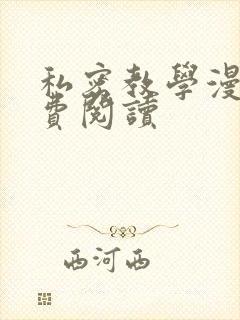 私密教學漫
費閱讀
西河西